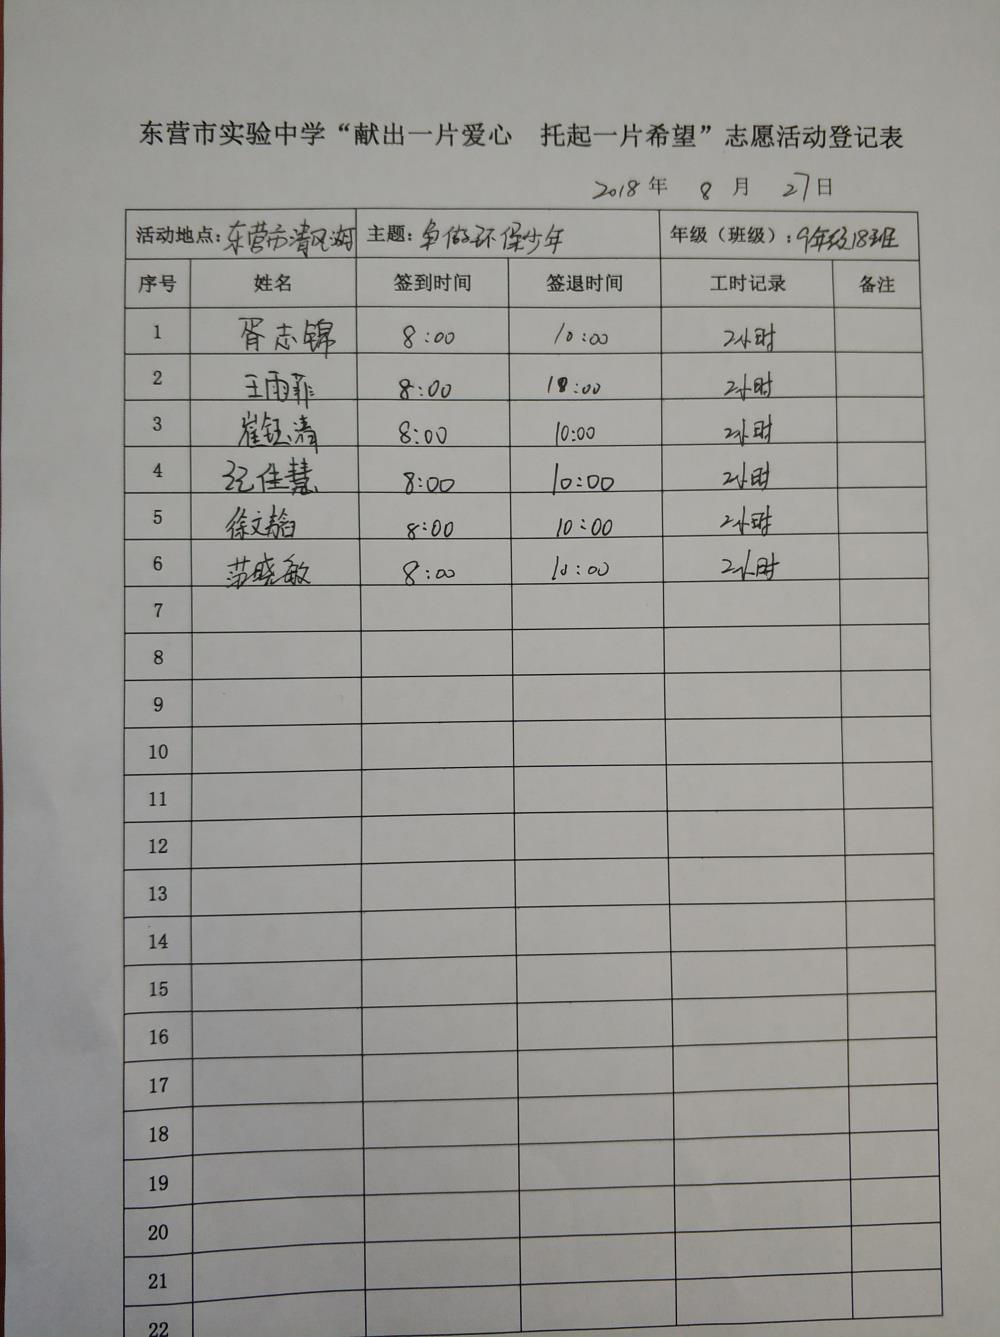 东营市实验中学“献出一片爱心 托起一片希望”志愿活动登记表
2018年 8月 27日
活动地点:东营市清风湖 主题:争做环保少年 年级(班级):9年级18班
序号 姓名 签到时间 签退时间 工时记录 备注
1 胥志锦 8:00 10:00 2小时
2 王雨菲 8:00 10:00 2小时
3 崔钰清 8:00 10:00 2小时
4 纪佳慧 8:00 10:00 2小时
5 徐文韬 8:00 10:00 2小时
6 范晓敏 8:00 10:00 2小时
7
8
9
10
11
12
13
14
15
16
17
18
19
20
21
22